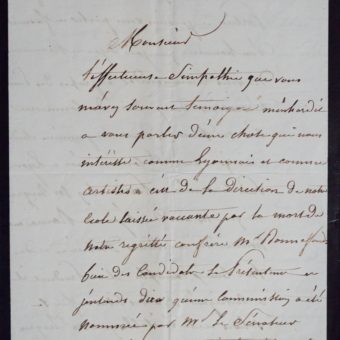 Monsieur
l'affectueuse Simpathie que vous
m'avez souvent témoigné m'enhardit
a vous parler d'une chose qui vous
intéresse comme Lyonnais et comme
artiste c'est de la direction de notre
école laissée vaccante par la mort de
notre regretté confrère Mr Bonnefond
des Candidats se présentent
dix qu'une commission a été
nommée par Mr le Sénateur